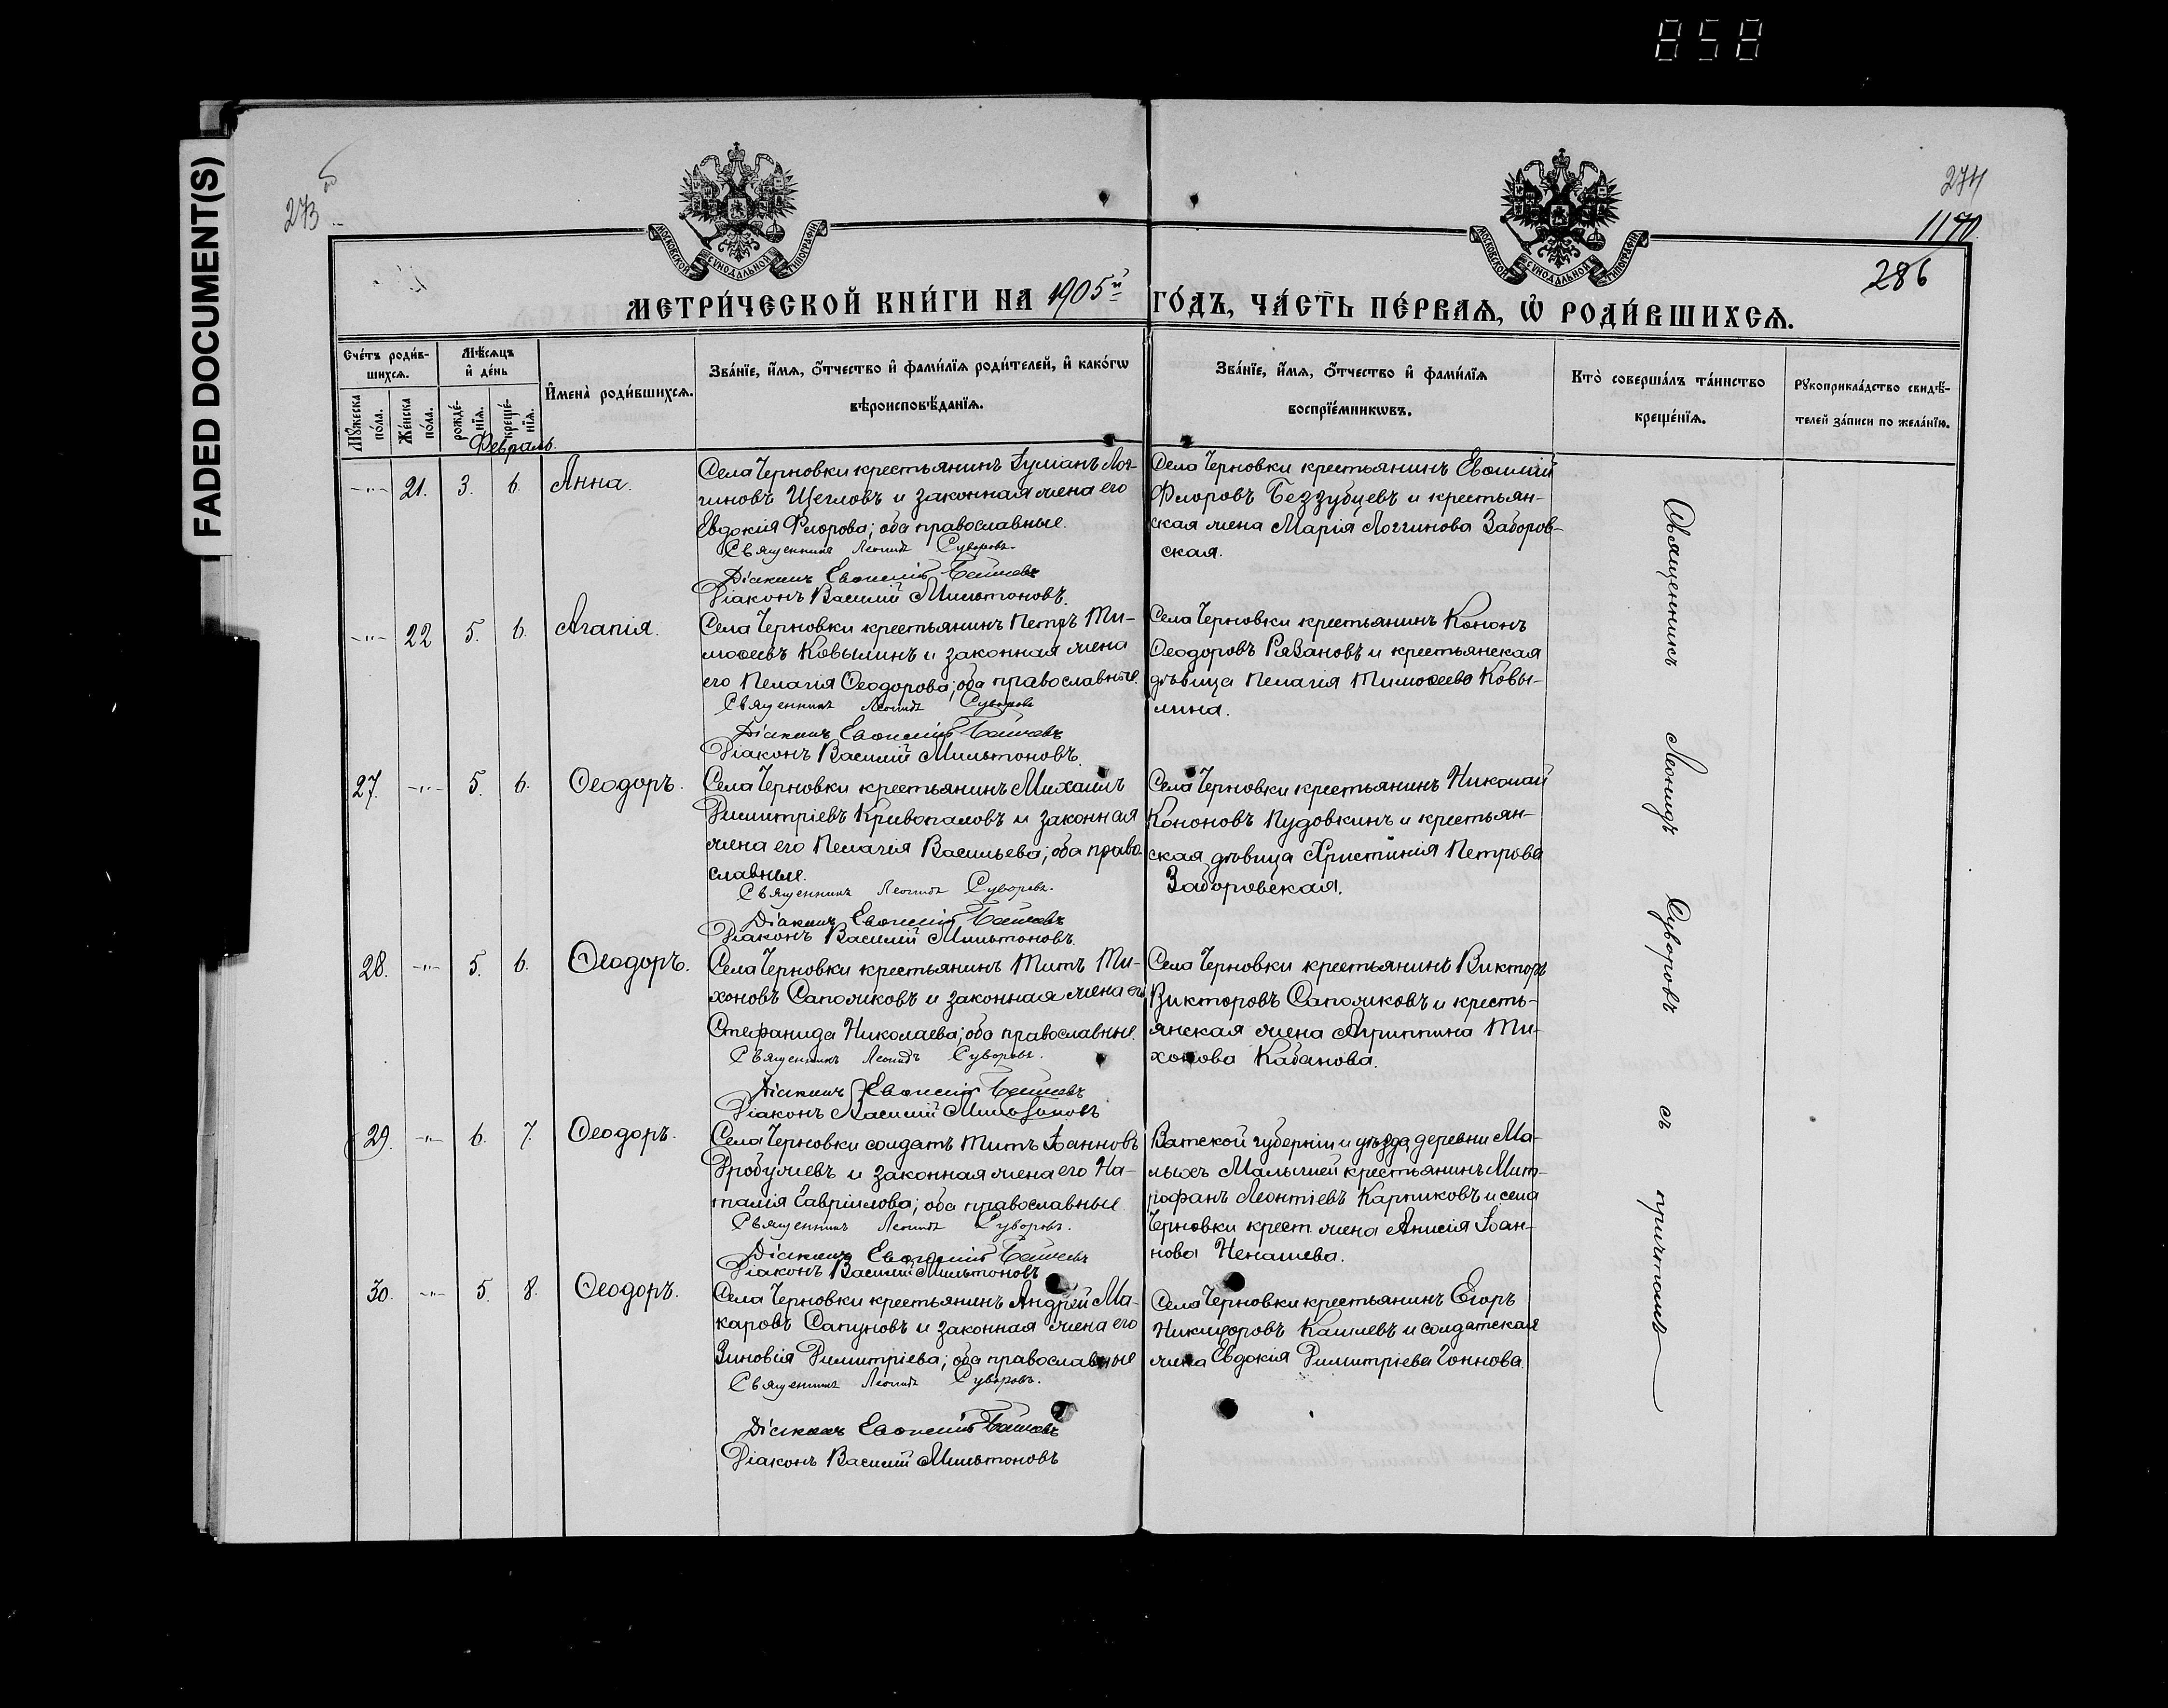 858
FADED DOCUMENT(S)
273 об
274
1170.
286
МОСКОВСКОЙ СѴНОДАЛЬНОЙ ТИПОГРАФІИ
МОСКОВСКОЙ СѴНОДАЛЬНОЙ ТИПОГРАФІИ
МЕТРИ́ЧЕСКОЙ КНИ́ГИ НА 1905й ГО́ДЪ, ЧА́СТЬ ПЕ́РВАЯ, Ѡ҆ РОДИ́ВШИХСЯ.
Сче́тъ роди́в-
шихся.
Мѣ́сяцъ
и҆ де́нь
Мꙋ́жеска
по́ла.
Же́нска
по́ла.
рожде́-
нїя.
креще́-
нїя.
И҆мена̀ роди́вшихся.
Зва́нїе, и҆́мя, о҆́тчество и҆ фами́лїя роди́телей, и҆ како́гѡ
вѣроисповѣ́данїя.
Зва́нїе, и҆́мя, о҆́тчество и҆ фами́лїя
воспрїе́мникѡвъ.
Кто̀ соверша́лъ та́инство
креще́нїя.
Рꙋкоприкла́дство свидѣ́-
телей за́писи по жела́нїю.
Февраль
-"- 21. 3. 6. Анна.
Села Черновки крестьянинъ Іуліанъ Лог-
гиновъ Щегловъ и законная жена его
Евдокія Флорова; оба православные.
Священникъ Леонидъ Суворовъ.
Діаконъ Евѳимій
Діаконъ Василій Мильтоновъ.
Села Черновки крестьянинъ Евѳимій
Флоровъ Беззубцевъ и крестьян-
ская жена Марія Логгинова Заборов-
ская.
-"- 22 5. 6. Агапія.
Села Черновки крестьянинъ Петръ Ти-
моѳеевъ Ковылинъ и законная жена
его Пелагія Ѳеодорова; оба православные.
Священникъ Леонидъ Суворовъ
Діаконъ Евѳимій
Діаконъ Василій Мильтоновъ.
Села Черновки крестьянинъ Кононъ
Ѳеодоровъ Рязановъ и крестьянская
дѣвица Пелагія Тимоѳеева Ковы-
лина.
27. -"- 5. 6. Ѳеодоръ.
Села Черновки крестьянинъ Михаилъ
Димитріевъ Кривопаловъ и законная
жена его Пелагія Васильева; оба право-
славные.
Священникъ Леонидъ Суворовъ.
Діаконъ Евѳимій
Діаконъ Василій Мильтоновъ.
Села Черновки крестьянинъ Николай
Кононовъ Пудовкинъ и крестьян-
ская дѣвица Христинія Петрова
Заборовская.
28. -"- 5. 6. Ѳеодоръ.
Села Черновки крестьянинъ Титъ Ти-
хоновъ Сапожковъ и законная жена его
Стефанида Николаева; оба православные.
Священникъ Леонидъ Суворовъ.
Діаконъ Евѳимій
Діаконъ Василій Мильтоновъ
Села Черновки крестьянинъ Викторъ
Викторовъ Сапожковъ и кресть-
янская жена Агриппина Ти-
хонова Кабанова.
29. -"- 6. 7. Ѳеодоръ.
Села Черновки солдатъ Титъ Іоанновъ
Дробужевъ и законная жена его На-
талія Гавріилова; оба православные
Священникъ Леонидъ Суворовъ.
Діаконъ Евѳимій
Діаконъ Василій Мильтоновъ
Вятской губерніи и уѣзда, деревни Ма-
лыхъ крестьянинъ Мит-
рофанъ Леонтіевъ Карпиковъ и села
Черновки крест. жена Анисія Іоан-
нова Ненашева.
30. -"- 5. 8. Ѳеодоръ.
Села Черновки крестьянинъ Андрей Ма-
каровъ Сапуновъ и законная жена его
Зиновія Димитріева; оба православные
Священникъ Леонидъ Суворовъ.
Діаконъ Евѳимій
Діаконъ Василій Мильтоновъ
Села Черновки крестьянинъ Егоръ
Никифоровъ Кашаевъ и солдатская
жена Евдокія Димитріева
Священникъ Леонидъ Суворовъ съ причтомъ